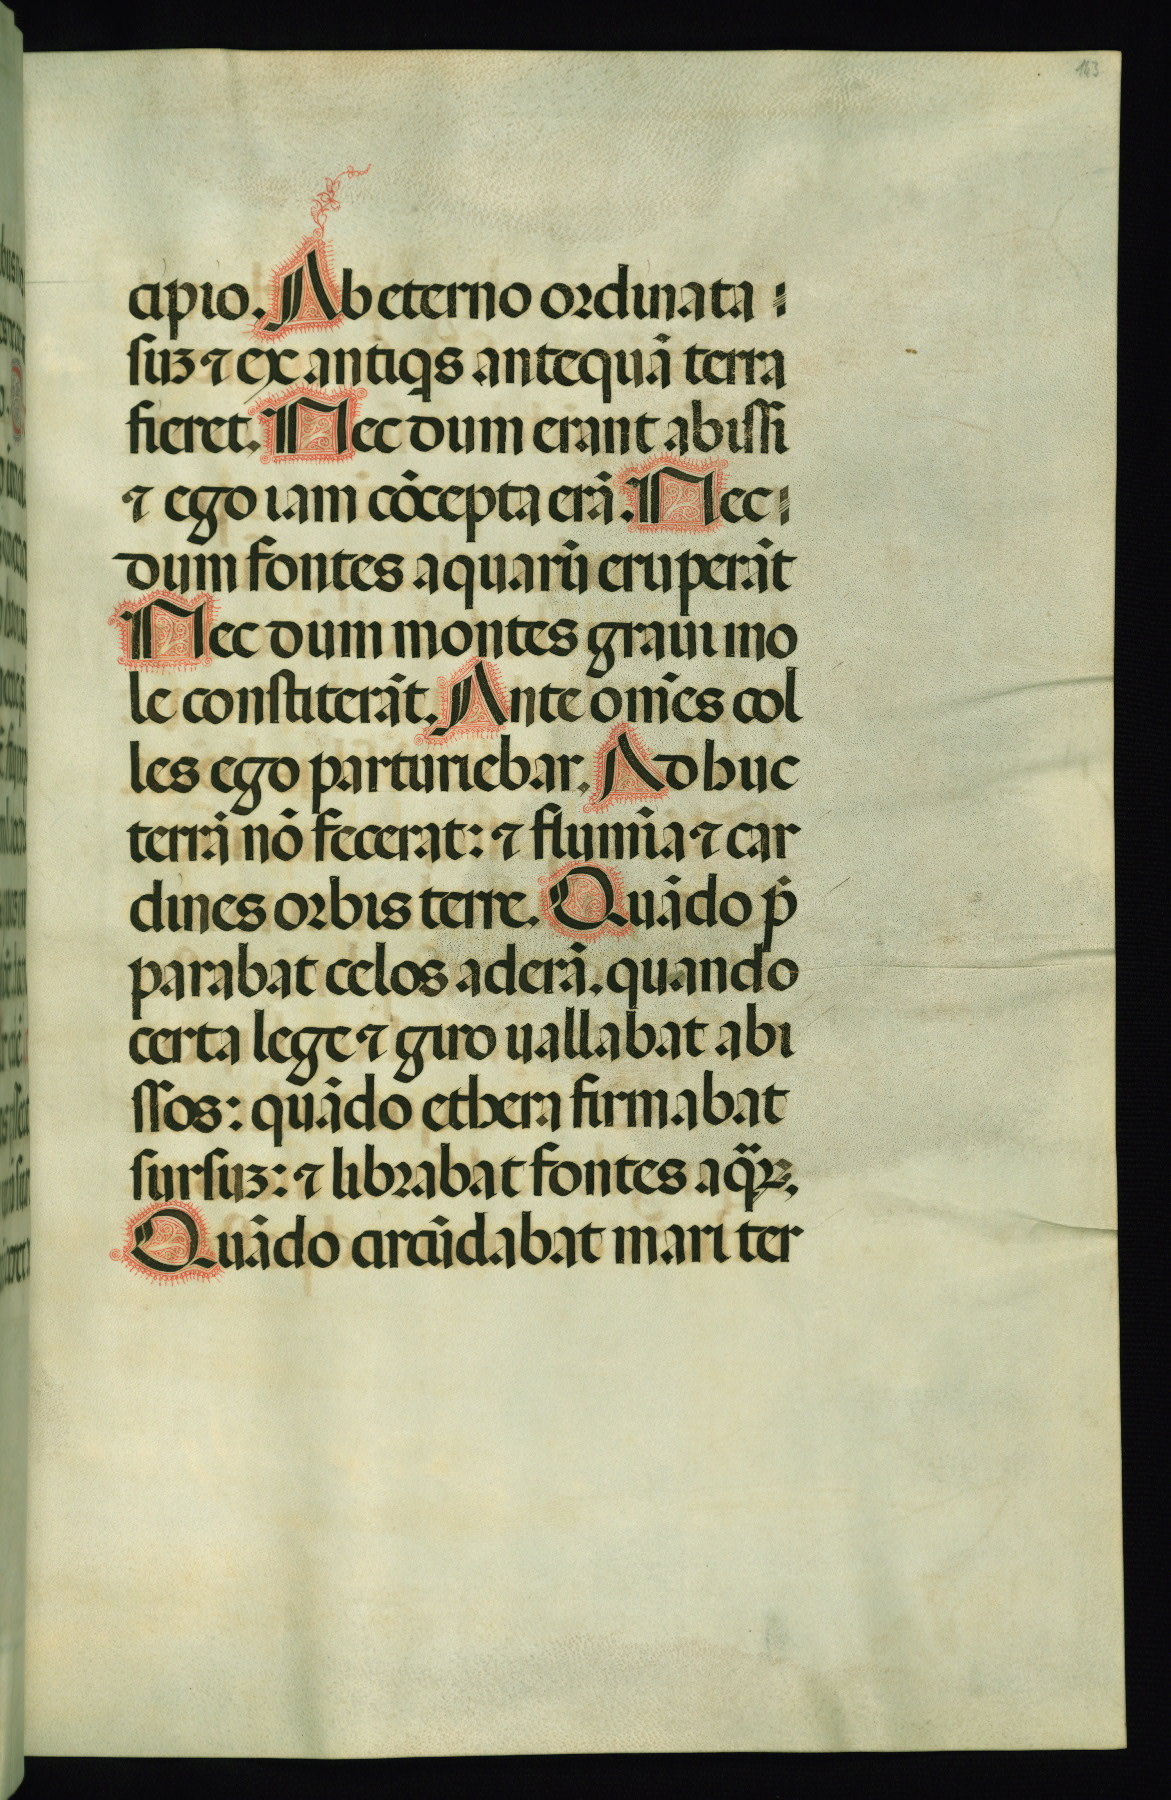 143
cipio. Ab eterno ordinata
suꝫ ⁊ ex antiqs antequā terra
fieret. Nec dum erant abissi
⁊ ego iam cōcepta erā. Nec
dum fontes aquarū eruperāt
Nec dum montes graui mo
le constiterāt. Ante om̄es col
les ego parturiebar. Adhuc
terrā nō fecerat: ⁊ flumīa ⁊ car
dines orbis terre. Quādo p̄
parabat celos aderā. quando
certa lege ⁊ giro uallabat abi
ssos: quādo ethera firmabat
sursuꝫ: ⁊ librabat fontes aqꝝ.
Quādo circūdabat mari ter